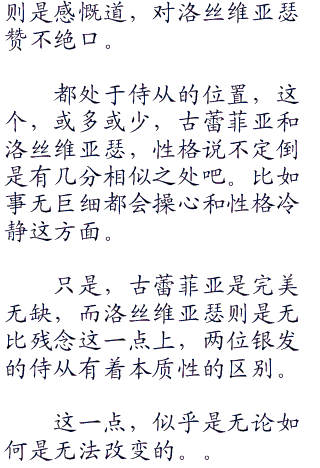 则是感慨道，对洛丝维亚瑟
赞不绝口。
都处于侍从的位置，这
个，或多或少，古蕾菲亚和
洛丝维亚瑟，性格说不定倒
是有几分相似之处吧。比如
事无巨细都会操心和性格冷
静这方面。
只是，古蕾菲亚是完美
无缺，而洛丝维亚瑟则是无
比残念这一点上，两位银发
的侍从有着本质性的区别。
这一点，似乎是无论如
何是无法改变的。。